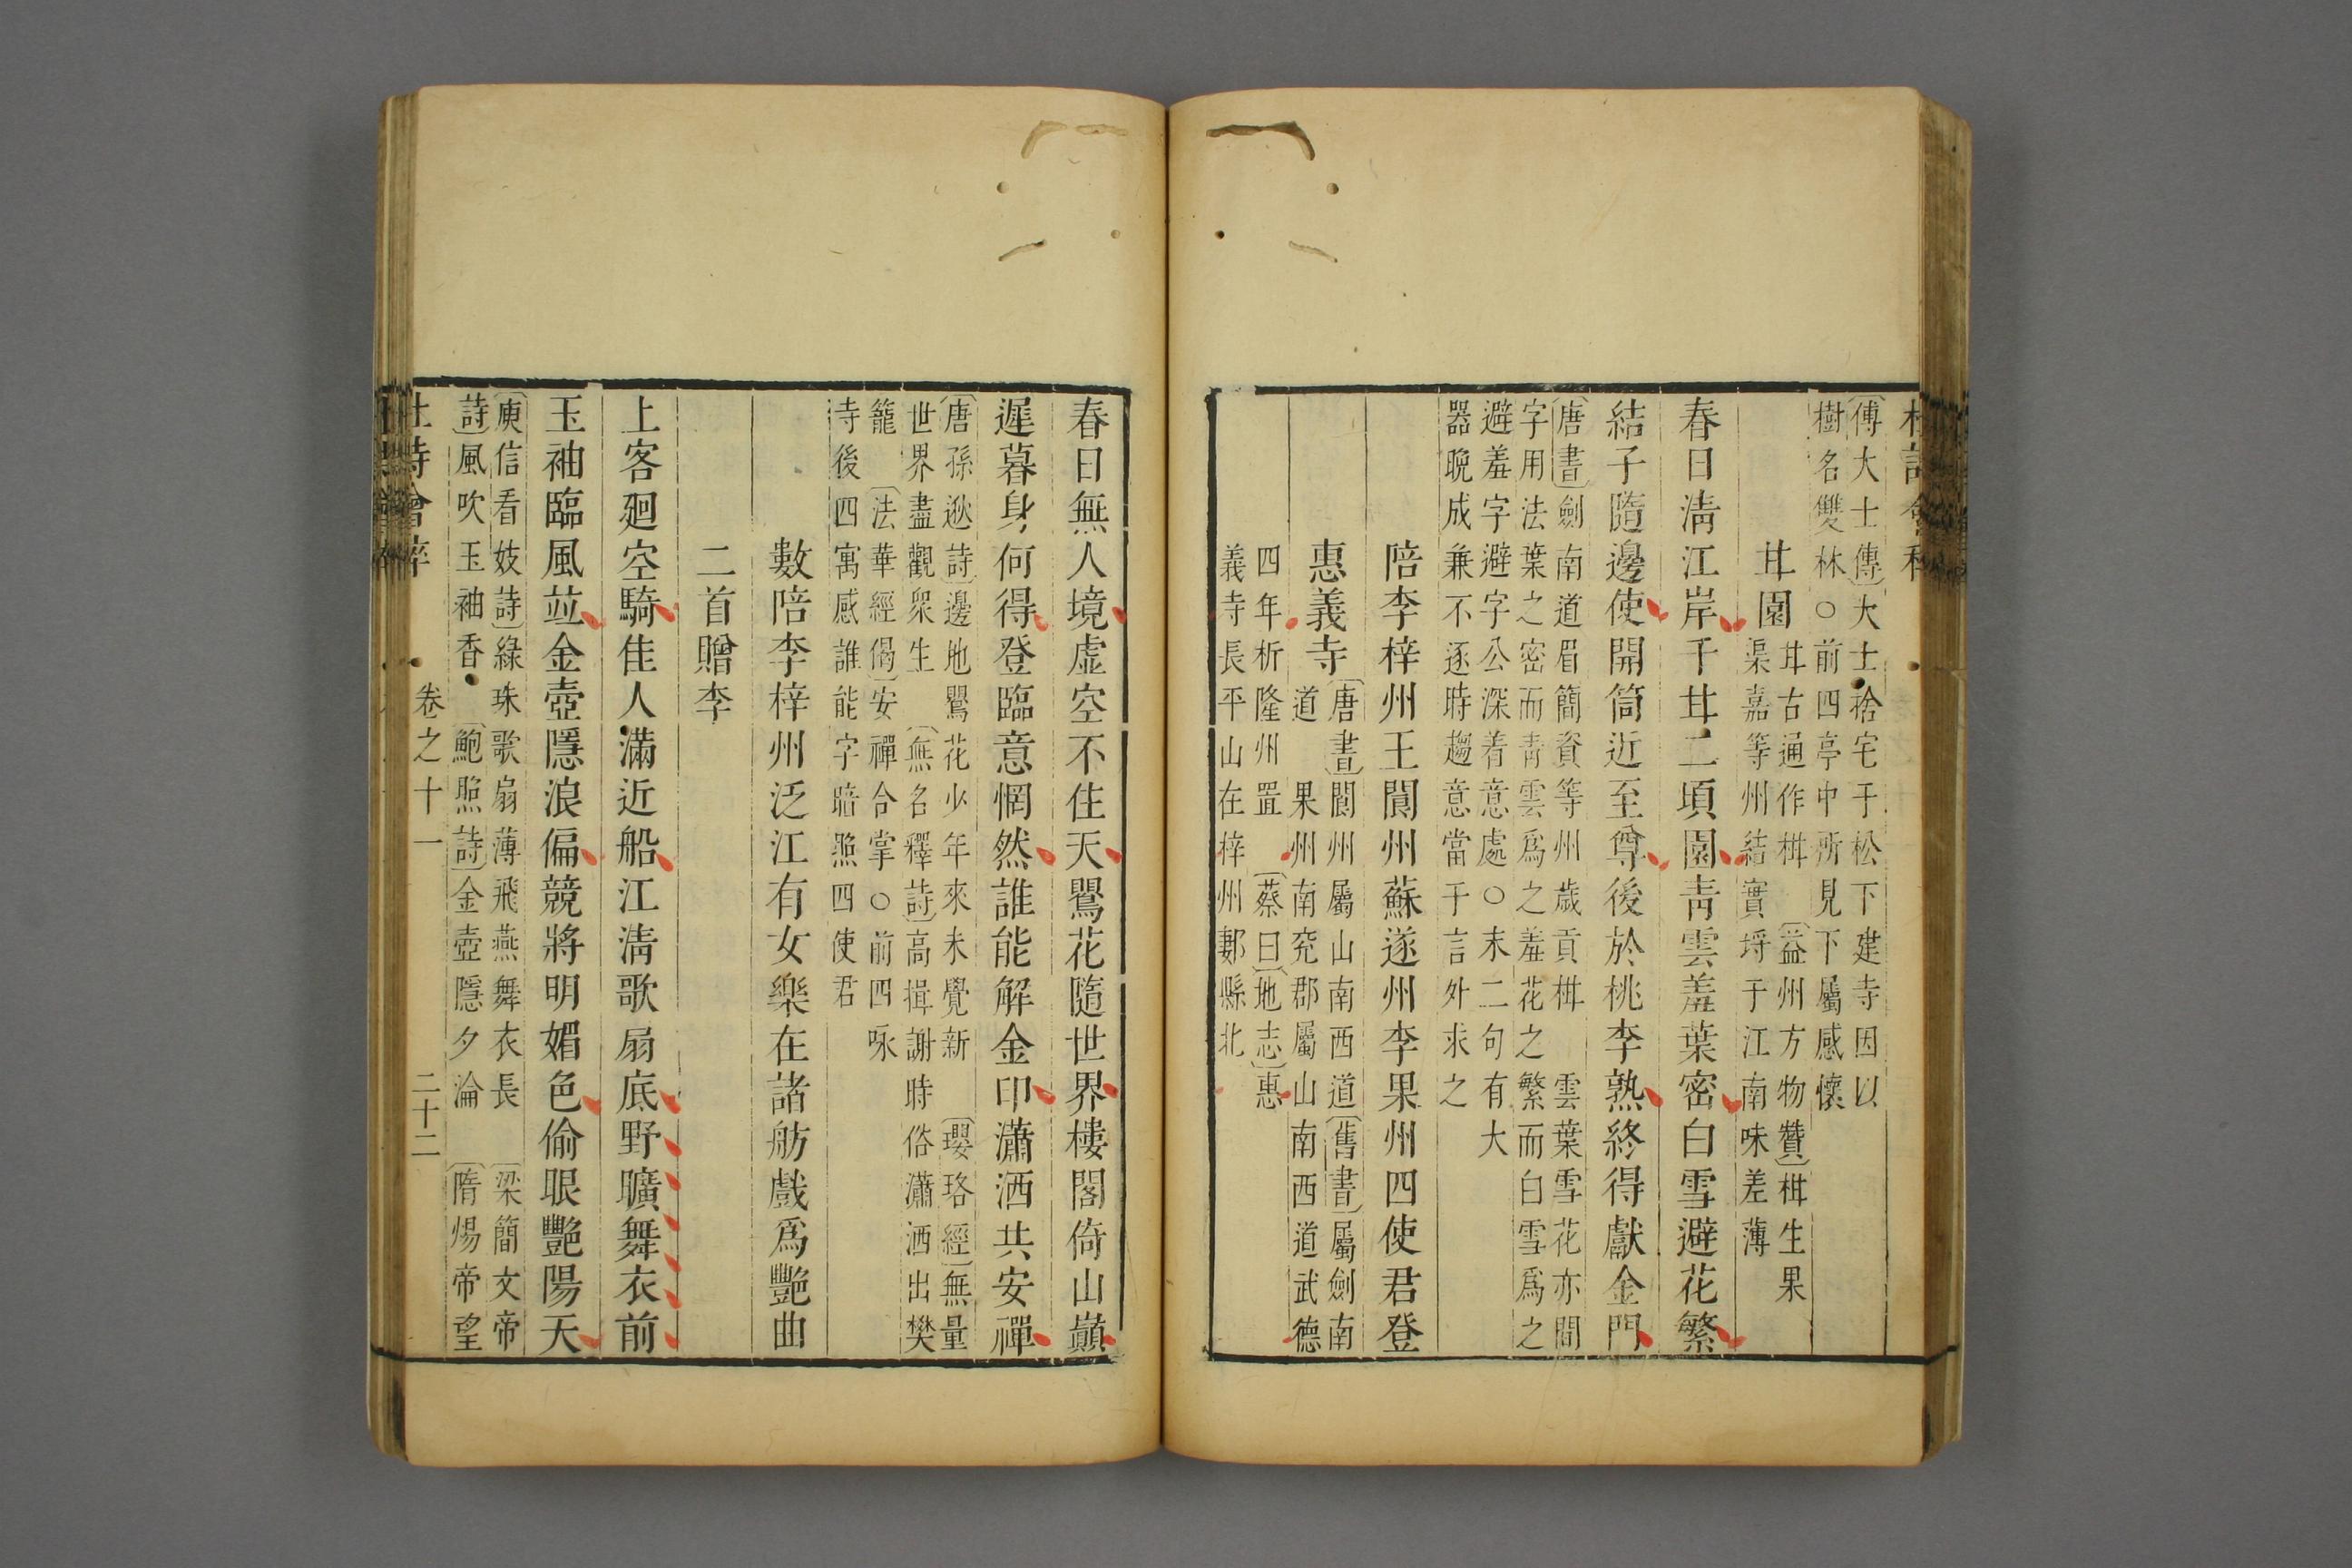 傅大士傳大士捨宅于松下建寺因以
樹名雙林○前四亭中所見下屬感懷
甘園
甘古通作柑　益州方物贊柑生果
渠嘉等州結實埒于江南味差薄
春日淸江岸千甘二頃園靑雲羞葉密白雪避花繁
結子隨邊使開筒近至尊後於桃李熟終得獻金門
唐書劍南道眉簡資等州歲貢柑　雲葉雪花亦間
字用法葉之密而靑雲爲之羞花之繁而白雪爲之
避羞字避字公深着意處○末二句有大
器晚成兼不逐時趨意當于言外求之
陪李梓州王閬州蘇遂州李果州四使君登
惠義寺
唐書閬州屬山南西道舊書屬劍南
道　果州南充郡屬山南西道武德
四年析隆州置　蔡曰地志惠
義寺長平山在梓州郪縣北
春日無人境虛空不住天鸎花隨世界樓閣倚山巔
遲暮身何得登臨意惘然誰能解金印瀟洒共安禪
唐孫逖詩邊地鸎花少年來未覺新　瓔珞經無量
世界盡觀衆生　無名釋詩高揖謝時俗瀟洒出樊
籠　法華經偈安禪合掌○前四咏
寺後四寓感誰能字暗照四使君
數陪李梓州泛江有女樂在諸舫戲爲艷曲
二首贈李
上客廻空騎佳人滿近船江淸歌扇底野曠舞衣前
玉袖臨風並金壺隱浪偏競將明媚色偷眼艷陽天
庾信看妓詩綠珠歌扇薄飛燕舞衣長　梁簡文帝
詩風吹玉袖香　鮑照詩金壺隱夕淪　隋煬帝望
杜詩會稡　卷之十一　二十二